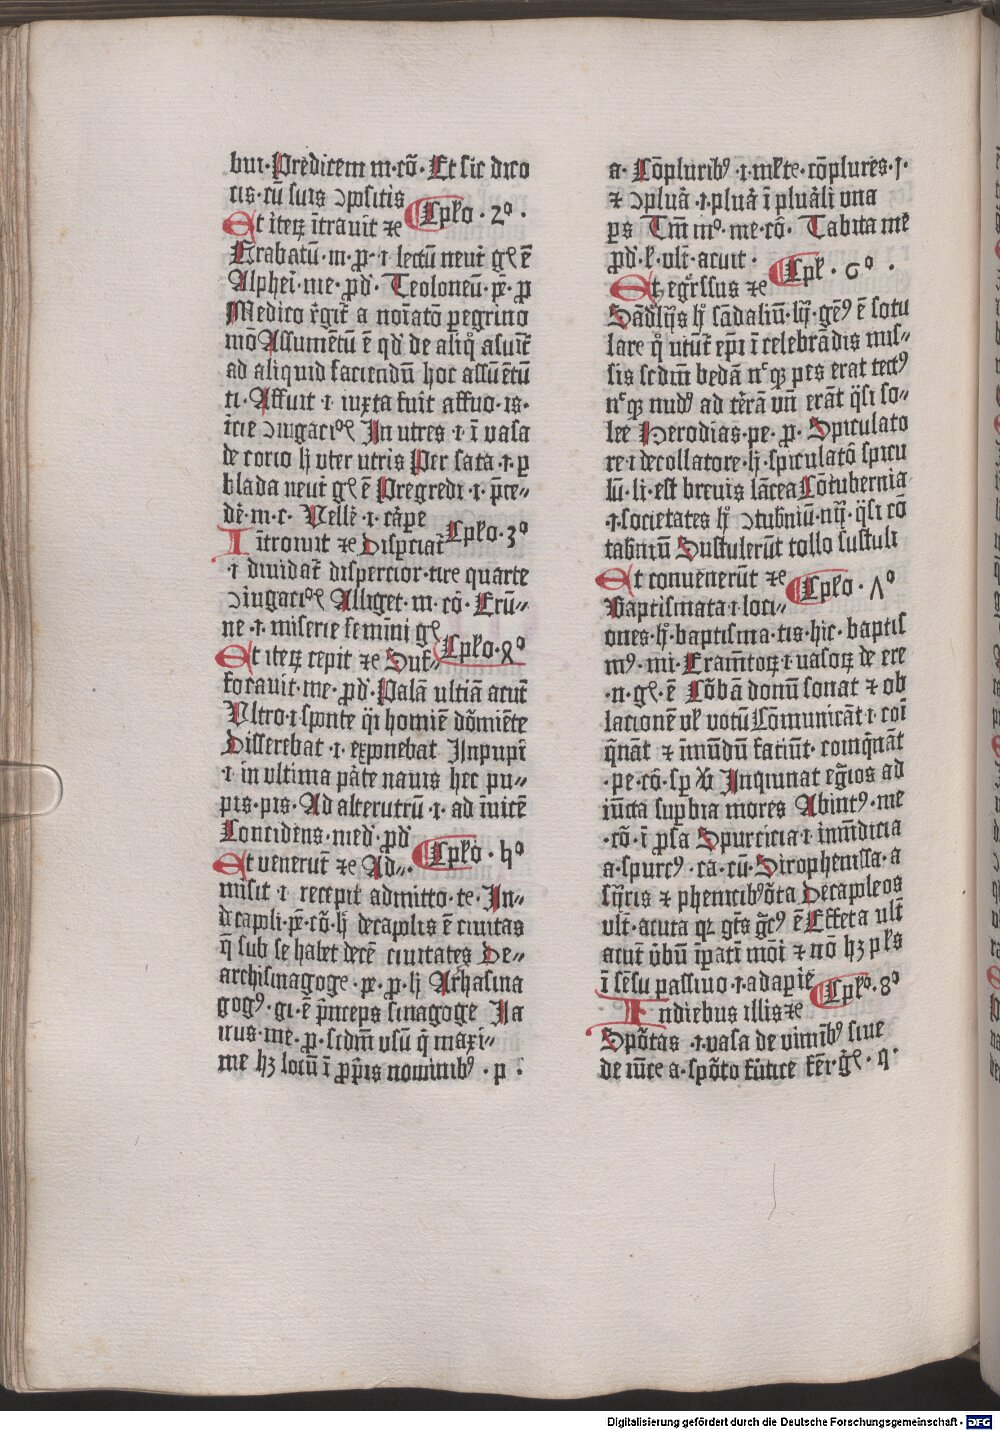 bui·Predicem m·cō· Et sic dico
ris·cū suis ɔpositis
Et iterꝫ ītrauit ⁊c Cpło·2°·
Grabatū·m·p̄·ı lectū neut̄ gꝭ ē
Alphei·me·p̄d· Teoloneū·p̄·p
Medico r̄git̄ a noīatō pegrino
mō Assumētū ē qd̄ de aliq̊ asuit̄
ad aliquid faciendū hoc assūētū
ti·Affuit·ı·iuxta fuit affuo·is·
icie ɔiugacioꝭ In utres·ı·ī uasa
de corio h̄ uter utris Per sata·ı·p
blada neut̄ gꝭ ē Pregredi·ı·p̄ce„
dē·m·c· Velle·ı·cāpe
Introiuit ⁊c Disp̄ciat̄ Cpło·3°
·ı diuidat̄ dispercior·tire quarte
ɔiugacioꝭ Alliget·m·cō·Erū„
ne·ı·miserie femini gꝭ
Et iterꝫ cepit ⁊c Suf„ Cpło·ꝝ°
focauit·me·p̄d·Palā ultiā acut̄
Vltro·ı sponte q̄i homiē dōmiēte
Disserebat·ı·exponebat Inpupi
·ı·in ultima pāte nauis hec pu„
pis·pis·Ad alterutrū·ı·ad inicē
Concidens·med̄·p̄d
Et venerut̄ ⁊c Ad„· Cpło·h°
misit·ı recepit admitto·te·In„
decapli·p̄·cō·h̄ decapolis ē ciuitas
q̄ sub se habet decē ciuitates De„
archisinagoge·p̄·p̄·h̄ Archasina
gogꝰ·gi·ē p̄nceps sinagoge Ja
irus·me·p̄·scdm̄ usū q̄ maxi„
me hꝫ locū ī p̄p̄is nominibꝰ·p·
a·Cōpluribꝰ·ı·młte·cōplures·ȷ·
⁊ ɔpluā·ı·pluā ī pluāli una
ps Tm̄ inꝰ·me·cō· Tabita mē
p̄d·ł·ult̄·acuit·
Et eḡssus ⁊c Cpł·6°·
Sādlijs h̄ sādaliū·lij·gēꝰ ē sotu
lare q̊ utūt̄ ep̄i ī celebrādis mis„
sis scdm̄ bedā nᶜqꝫ pes erat tectꝰ
nᶜqꝫ nudꝰ ad tērā un̄ erāt q̄si so„
lee Herodias·pe·p̄· Spiculato
re·ı decollatore·h̄·spiculatō spicu
lū·li·est breuis lācea Cōtubernia
·ı·societates h̄ ɔtubniū·nij·q̄si cō
tabniū Sustulerūt tollo sustuli
Et conuenerūt ⁊c Cpło·Λ°
Baptismata·ı·loci„
ones·h̄·baptisma·tis·hic·baptis
mꝰ·mi·Eramētoꝝ·ı·uasoꝝ de ere
·n·gꝭ·ē Cōbā donū sonat ⁊ ob
lacionē uł uotū Cōmunicāt·ı·coi
q̄nāt ⁊ īmūdū faciūt·comq̄nāt
·pe·cō·sp̄ Inquinat eḡios ad
iūcta supbia mores Abintꝰ·me
·cō·ī p̄sa Spurcicia·ı·inmūdicia
a·spurcꝰ·ca·cū·Sirophenissa·a
sijris ⁊ phenicibꝰ ōta Decapleos
ult̄·acuta qꝫ gt̄s g̊cꝰ ē Effeta ult̄
acut̄ v̄bū īpatī moi ⁊ nō hꝫ płs
ī sēsu passiuo·ı·adapie
Indiebus illis ⁊c Cpło·8°
Spōtas ·ı·uasa de uimībꝰ siue
de iūce a·spōto fūtice fēi·ḡꝭ·q·
Digitalisierung gefördert durch die Deutsche Forschungsgemeinschaft - DFG